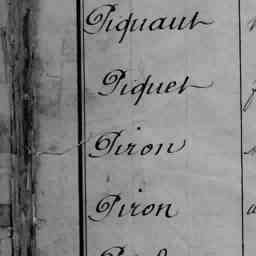 Piquaut
Piquet
Piron
Piron